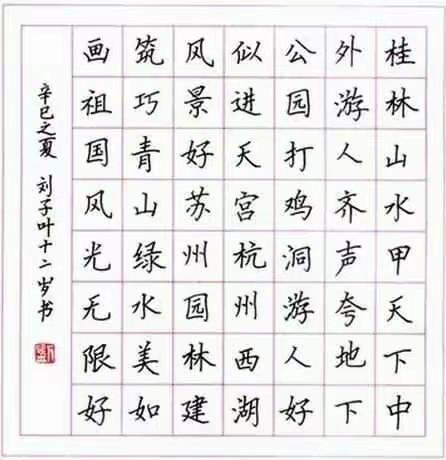 桂林山水甲天下中
外游人齐声夸地下
公园打鸡洞游人好
似进天宫杭州西湖
风景好苏州园林建
筑巧青山绿水美如
画祖国风光无限好
辛巳之夏 刘子叶十二岁书